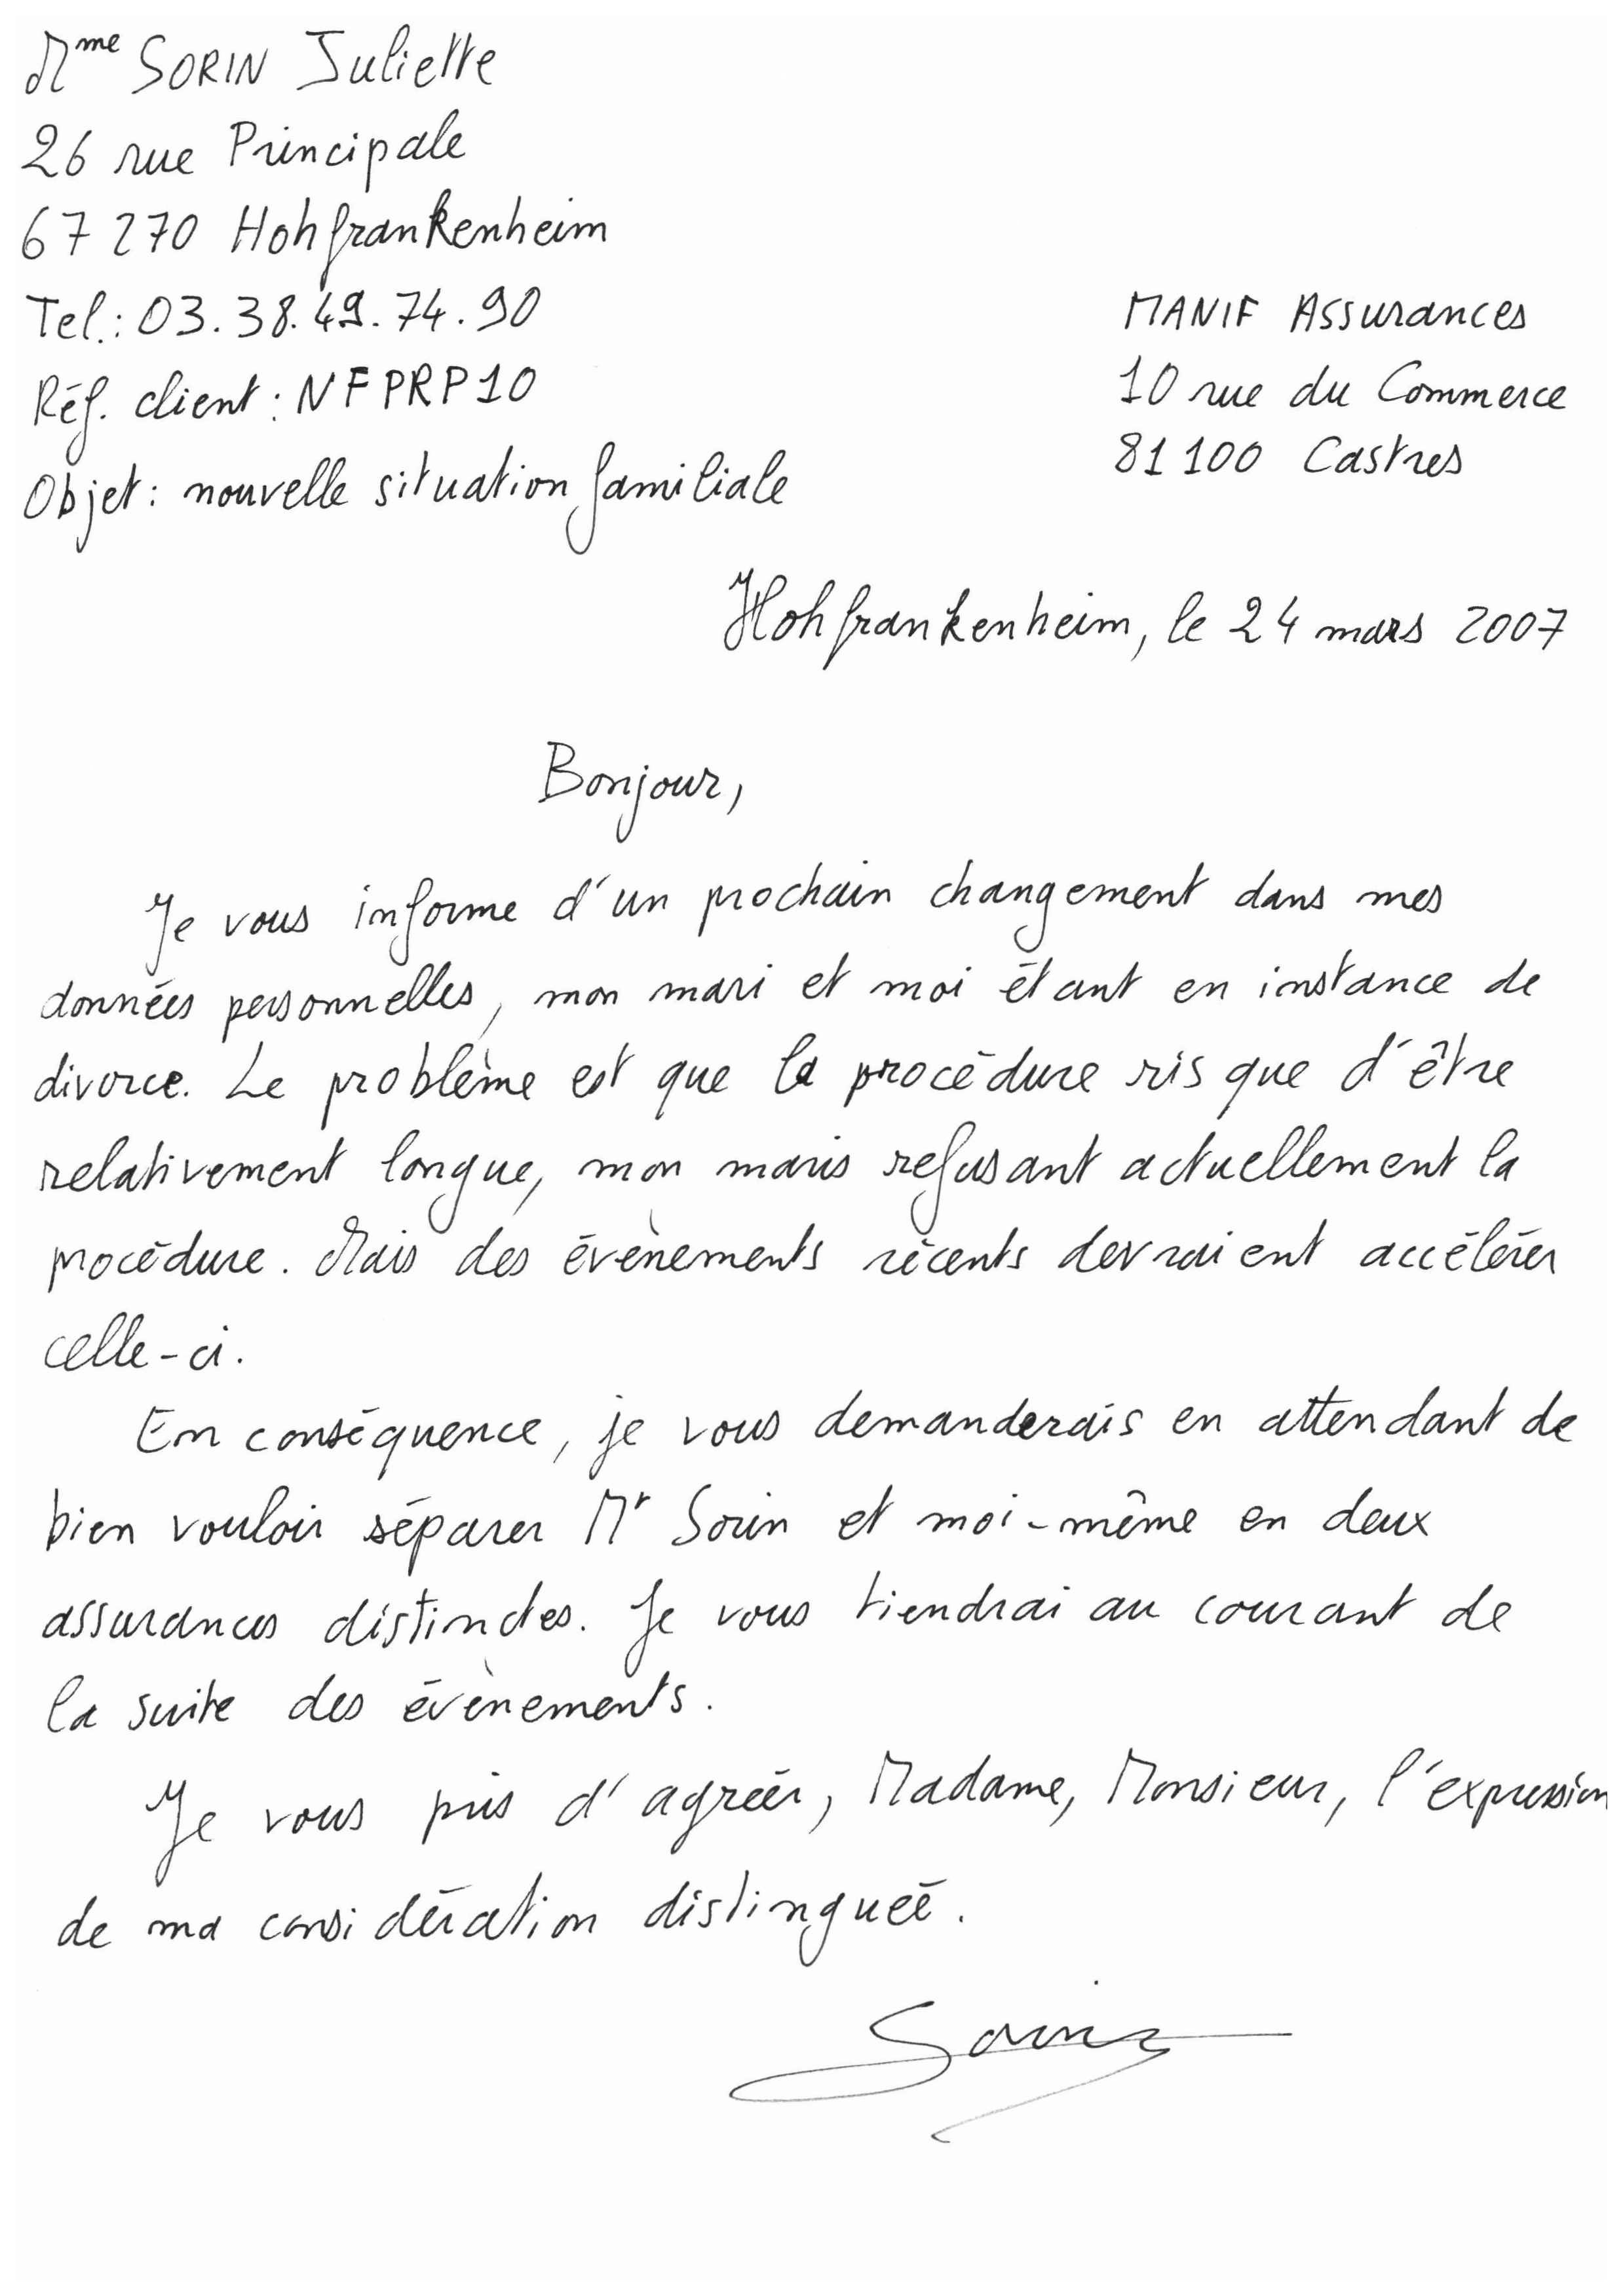 Mme SORIN Juliette
26 rue Principale
67 270 Hohfrankenheim
Tel.: 03.38.49.74.90
Réf. client : NFPRP10
Objet : nouvelle situation familiale
MANIF Assurances
10 rue du Commerce
81 100 Castres
Hohfrankenheim, le 24 mars 2007
Bonjour,
Je vous informe d'un prochain changement dans mes
données personnelles, mon mari et moi étant en instance de
divorce. Le problème est que la procédure risque d'être
relativement longue, mon maris refusant actuellement la
procédure. Mais des évènements récents devraient accélérer
celle-ci.
En conséquence, je vous demanderais en attendant de
bien vouloir séparer Mr Sorin et moi-même en deux
assurances distinctes. Je vous tiendrai au courant de
la suite des évènements.
Je vous pris d'agréer, Madame, Monsieur, l'expression
de ma considération distinguée.
Sorin